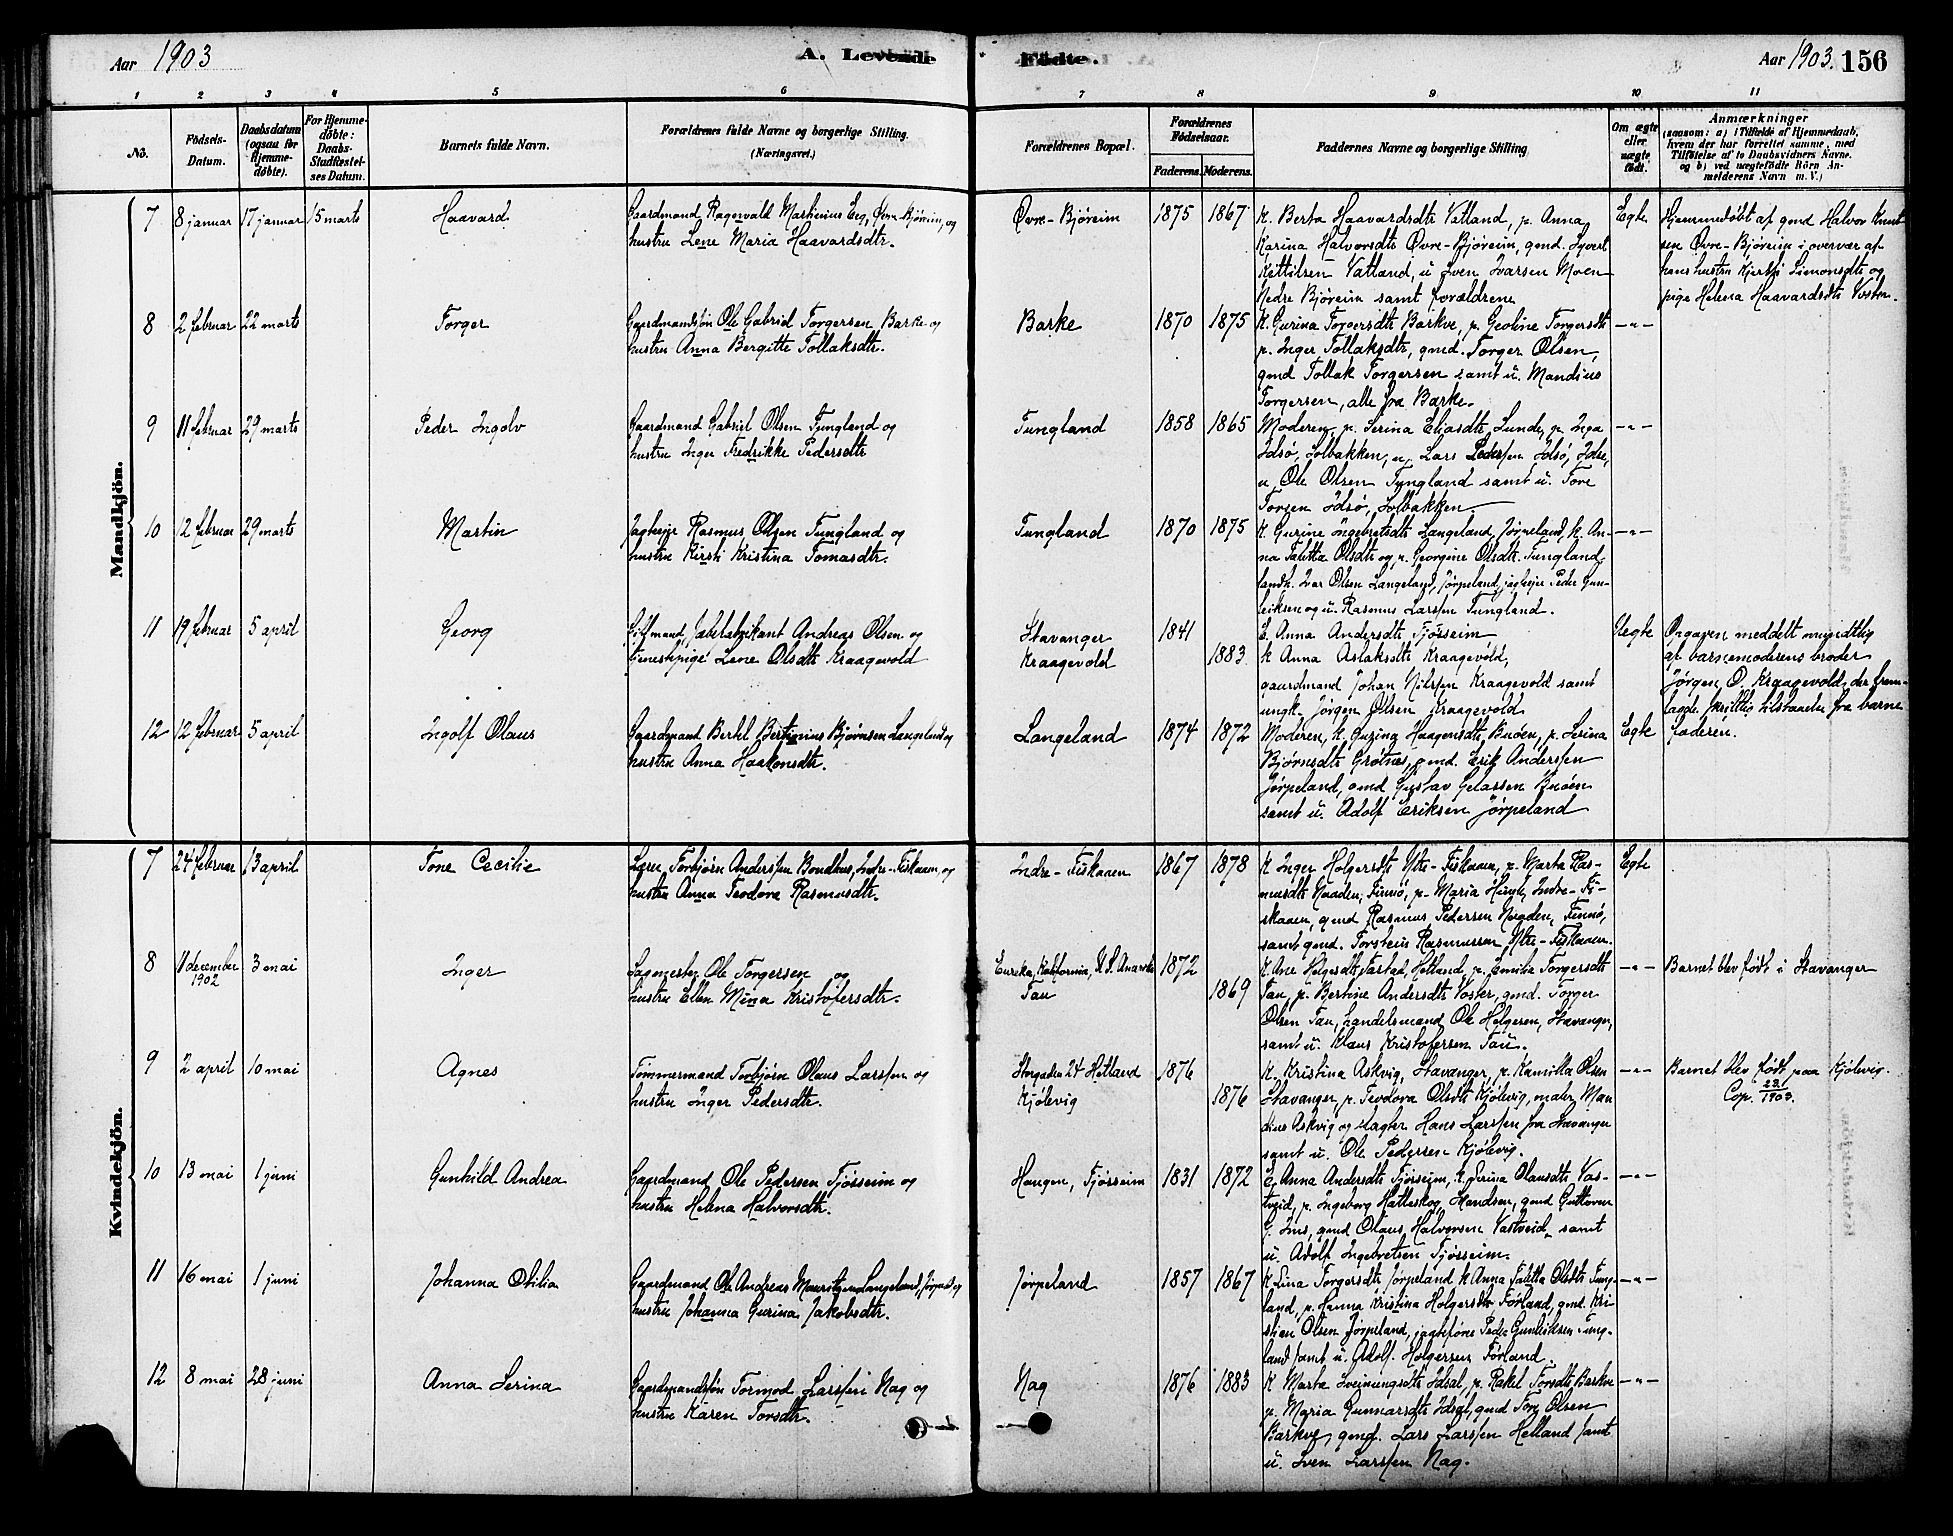 Aar 1903
A. Levende Födte.
Aar 1903. 156
1 2 3 4 5 6 7 8 9 10 11
No.
Födsels-
Datum.
Daabsdatum
(ogsaa for
Hjemme-
döbte).
For Hjemme-
döbte:
Daabs-
Stadfæstel-
ses Datum.
Barnets fulde Navn.
Forældrenes fulde Navne og borgerlige Stilling.
(Næringsvei.)
Forældrenes Bopæl.
Forældrenes
Födselsaar.
Faderens. Moderens.
Faddernes Navne og borgerlige Stilling
Om ægte
eller
uægte
födt.
Anmærkninger
(saasom: a) i Tilfælde af Hjemmedaab,
hvem der har forrettet samme, med
Tilföielse af to Daabsvidners Navne.
og b) ved uægtefödte Börn An-
melderens Navn m. V.)
Mandkjön.
7 8 januar 17 januar 15 marts
Haavard
Gaardmand Ragnvald Martinius Eeg, Øvre-Björeim, og
hustru Lene Maria Haavardsdtr.
Øvre-Björeim
1875 1867
K. Berta Haavardsdtr Vatland, p. Anna
Karina Halvorsdtr Øvre-Björeim, gmd. Sjvert
Kittilsen Vatland, u Sven Ivarsen Moen
Nedre Björeim samt forældrene
Egte
Hjemmedöbt af gmd Halvor Knut
sen Øvre-Björeim i overvær af
hans hustru Kjersti Simonsdtr og
pige Helena Haavardsdtr Voster.
8 2 februar 22 marts
Torger
Gaardmandssön Ole Gabriel Torgersen Barke og
hustru Anna Bergitte Tollaksdtr.
Barke
1870 1875
K. Gurina Torgersdtr Barkve, p. Geoline Torgersdtr
p. Inger Tollaksdtr, gmd. Torger Olsen,
gmd Tollak Torgersen samt u. Mandius
Torgersen, alle fra Barke.
-"-
9 11 februar 29 marts
Peder Ingolv
Gaardmand Gabriel Olsen Tungland og
hustru Inger Fredrikke Pedersdtr
Tungland
1858 1865
Moderen, p. Serina Eliasdtr Lunde, p. Inga
Idsö, Solbakken, u. Lars Pedersen Idsö, Idse,
u. Ole Olsen Tungland samt u. Tore
Torsen Idsö, Solbakken
-"-
10 12 februar 29 marts
Martin
Jagteier Rasmus Olsen Tungland og
hustru Kirsti Kristina Tomasdtr.
Tungland
1870 1875
K. Gurine Ingebretsdtr Langeland, Jörpeland, k. An-
na Talitta Olsdtr og p. Georgine Olsdtr. Tungland,
landh. Ivar Olsen Langeland, Jörpeland, jagteier Peder Gun-
leiksen og u. Rasmus Larsen Tungland.
-"-
11 19 februar 5 april
Georg
Giftmand, sæbefabrikant Andreas Olsen og
tjenestepige Lene Olsdtr Kraagevold
Stavanger
Kraagevold
1841
1883
E. Anna Andersdtr Fjösseim
k Anna Aslaksdtr Kraagevold,
gaardmand Johan Nilssen Kraagevold samt
ungk. Jörgen Olsen Kraagevold
Uegte
Opgaven meddelt mundtlig
af barnemoderens broder
Jörgen O. Kraagevold, der frem-
lagde skriftlig tilstaaelse fra barne
faderen.
12 12 februar 5 april
Ingolf Olaus
Gaardmand Bertel Bertinius Björnsen Langeland og
hustru Anna Haakonsdtr.
Langeland
1874 1872
Moderen, k. Gurina Haagensdtr Buöen, p. Serina
Björnsdtr Grötnes, gmd. Erik Anderssen
Jörpeland, gmd Gustav Gelassen Buöen
samt u. Adolf Eriksen Jörpeland
Egte
Kvindekjön.
7 24 februar 13 april
Tone Cecilie
Lærer Torbjörn Anderssen Bondhus, Indre-Fiskaaen, og
hustru Anna Teodora Rasmusdtr.
Indre-Fiskaaen
1867 1878
K. Inger Holgersdtr Ytre-Fiskaaen, p. Marta Ras-
musdtr Naaden, Finnö, p. Maria Hauge, Indre-Fi-
skaaen, gmd Rasmus Pedersen Naaden, Finnö,
samt gmd. Torstein Rasmussen Ytre-Fiskaaen.
Egte
8 11 december 3 mai
1902
Inger
Sagmester Ole Torgersen og
hustru Ellen Mina Kristofersdtr.
Eureka, Kalifornia, U.S. Amerika
Tau
1872
1869
K. Ane Helgesdtr Tastad, Hetland, p. Emilia Torgersdtr
Tau, p. Bertine Andersdtr Voster, gmd. Torger
Olsen Tau, handelsmand Ole Helgesen, Stavanger,
samt u. Klaus Kristofersen Tau.
-"-
Barnet blev födt i Stavanger
9 2 april 10 mai
Agnes
Tömmermand Torbjörn Olaus Larssen og
hustru Inger Pedersdtr.
Storgaden 24 Hetland
Kjölevig
1876
1876
K. Kristina Askvig, Stavanger, p. Kamilla Olsen
Stavanger, p. Teodora Olsdtr Kjölevig, maler Man
dius Askvig og slagter Hans Larssen fra Stavanger
samt u. Ole Pedersen Kjölevig.
-"-
Barnet blev födt paa Kjölevig.
Cop. 23/1 1903.
10 13 mai 1 juni
Gunhild Andrea
Gaardmand Ole Pedersen Fjösseim og
hustru Helena Halvorsdtr.
Haugen, Fjösseim
1831 1872
E. Anna Andersdtr Fjösseim, k. Serina Olausdtr Vas-
tveid, p. Ingeborg Hatteskog, Strandsen, gmd Guttorm
G. Ims, gmd Olaus Halvorsen Vastveid, samt
u. Adolf Ingebretsen Fjösseim.
-"-
11 16 mai 1 juni
Johanna Otilia
Gaardmand Ole Andreas Mauritzen Langeland, Jörpeld og
hustru Johanna Gurina Jakobsdtr.
Jörpeland
1857 1867
K. Lina Torgersdtr Jörpeland k Anna Talitta Olsdtr Tung-
land, p. Hanna Kristina Holgersdtr Förland, gmd. Kri
stian Olsen Jörpeland, jagteförer Peder Gunleiksen Tung-
land samt u. Adolf Holgersen Förland.
-"-
12 8 mai 28 juni
Anna Serina
Gaardmandssön Tormod Larssen Nag og
hustru Karen Torsdtr.
Nag
1876 1883
K Marta Sveinungsdtr Idsal, p. Rakel Torsdtr Barkve
p. Maria Gunnarsdtr Idsal, gmd Tore Olsen
Barkve, gmd. Lars Larssen Helland samt
u. Sven Larssen Nag.
-"-